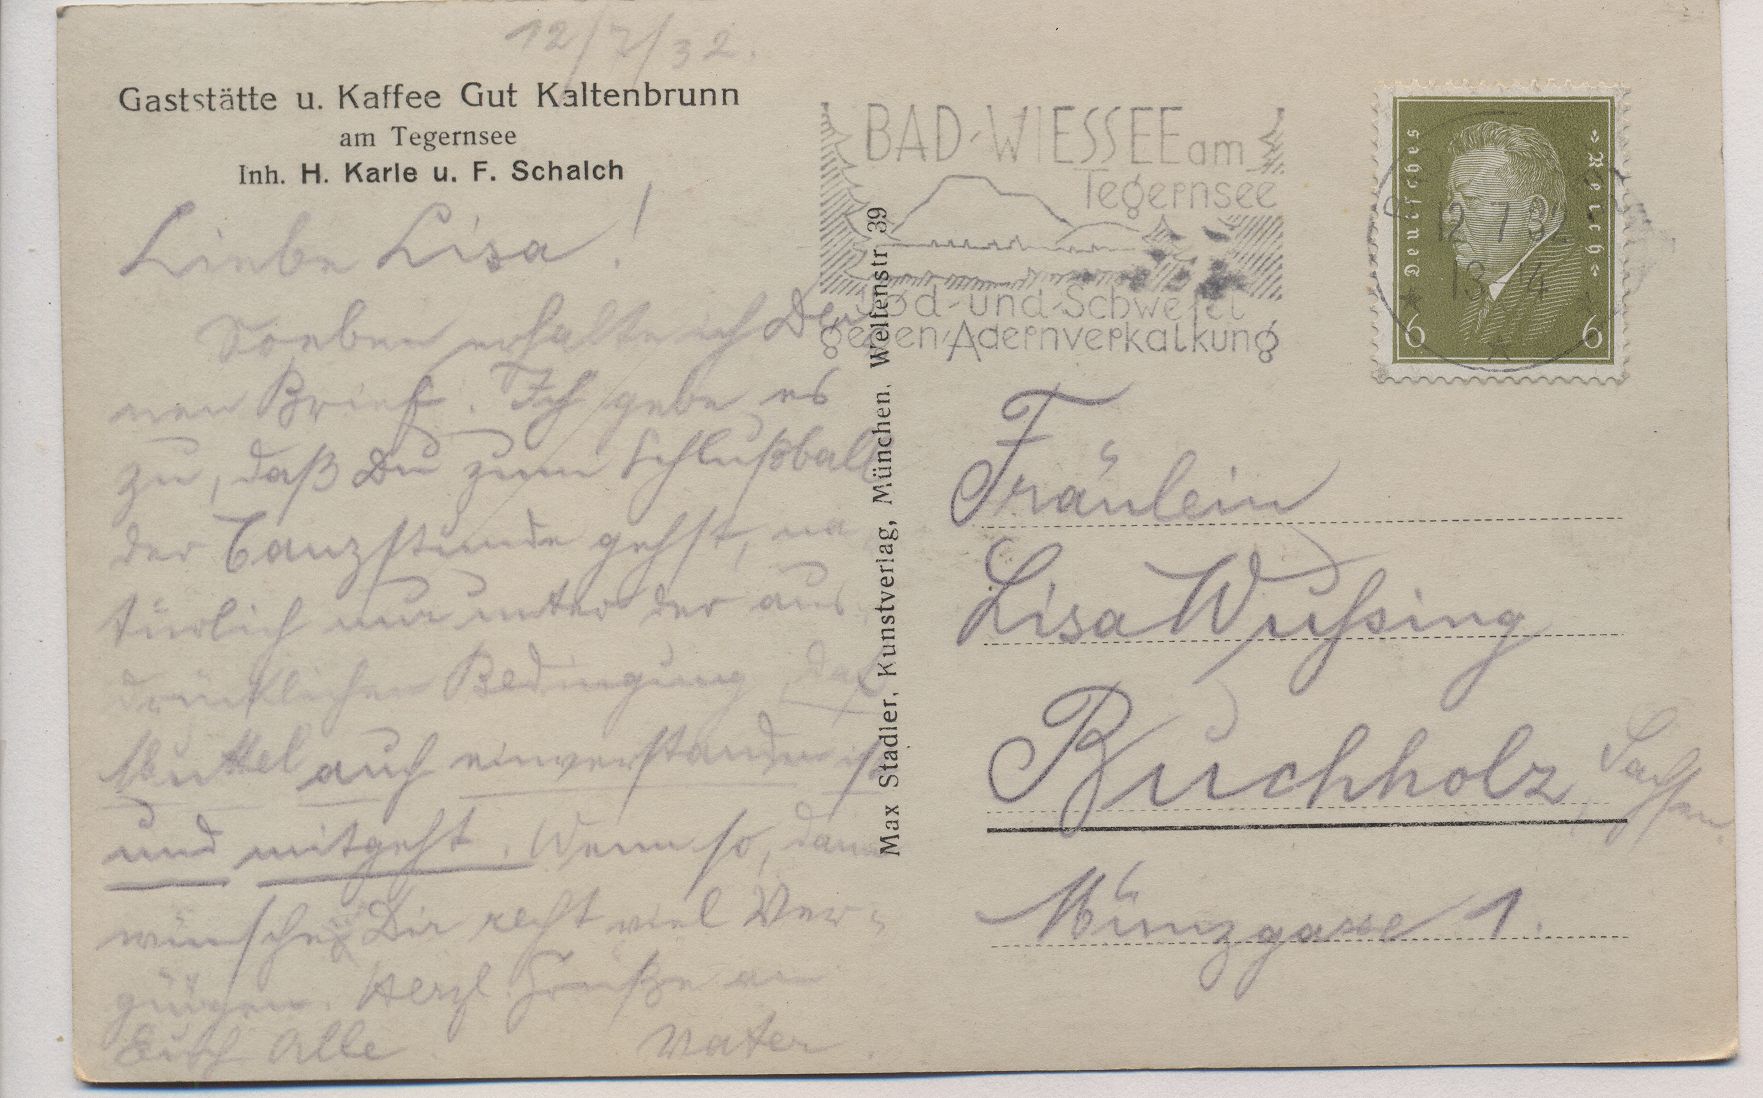 12/7/32.
Gaststätte u. Kaffee Gut Kaltenbrunn
am Tegernsee
Inh. H. Karle u. F. Schalch
Liebe Lisa!
Soeben erhalte ich Dei
nen Brief. Ich gebe es
zu, daß Du zum Schlußball
der Tanzstunde gehst, na
türlich nur unter der aus
drücklichen Bedingung, daß
Muttel auch einverstanden ist
und mitgeht. Wenn so, dann
wünsche Dir recht viel Ver-
gnügen. Herzl. Grüße an
Euch Alle Vater.
Max Stadler, Kunstverlag, München, Welfenstr. 39
BAD-WIESSEE am
Tegernsee
Jod-und-Schwefel
gegen Adernverkalkung
Deutsches Reich
6 6
12 7 32
13-14
Fräulein
Lisa Wußing
Buchholz Sachsen.
Münzgasse 1.